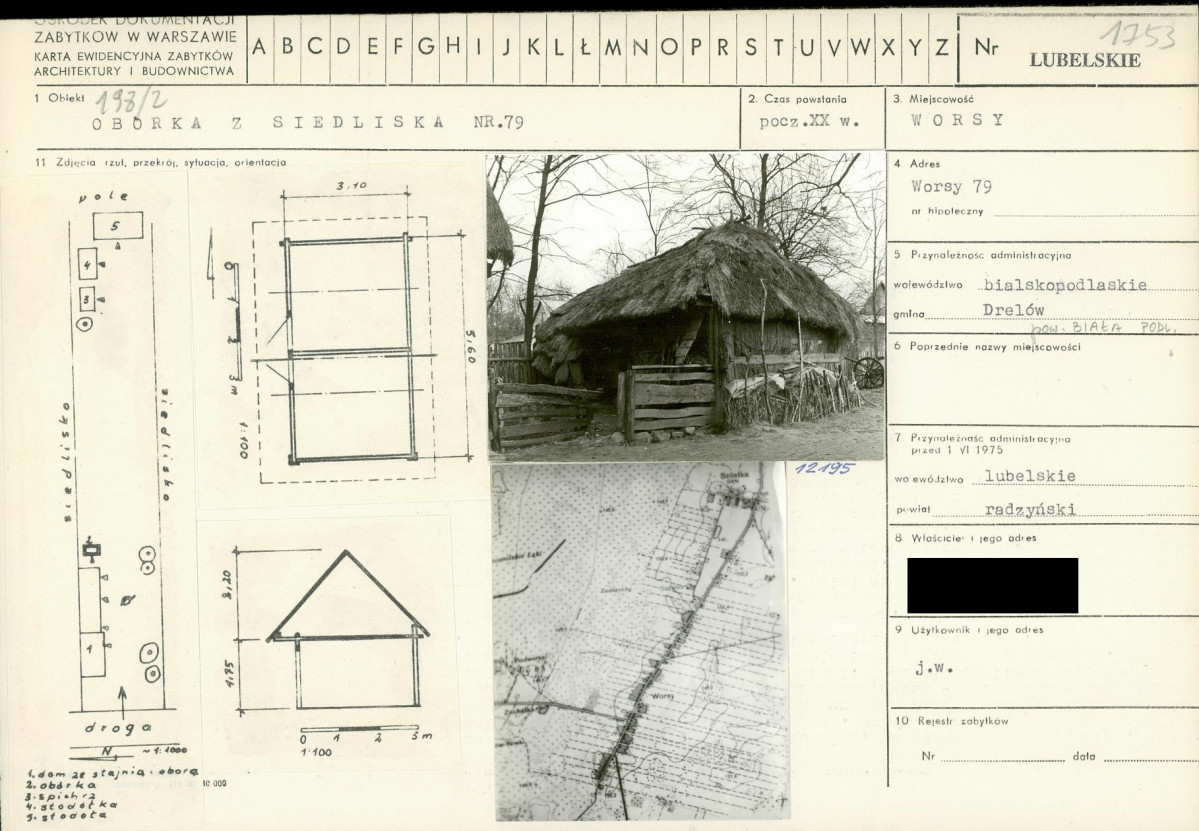 OŚRODEK DOKUMENTACJI
ZABYTKÓW W WARSZAWIE
KARTA EWIDENCYJNA ZABYTKÓW
ARCHITEKTURY I BUDOWNICTWA
A B C D E F G H I J K L Ł M N O P R S T U V W X Y Z
Nr
1753
LUBELSKIE
1 Obiekt
198/2
OBÓRKA Z SIEDLISKA NR.79
2. Czas powstania
pocz.XX w.
3. Miejscowość
WORSY
11 Zdjęcia rzut, przekrój, sytuacja, orientacja
4 Adres
Worsy 79
nr hipoteczny
5 Przynależność administracyjna
województwo bialskopodlaskie
gmina Drelów
pow. BIAŁA PODL.
6 Poprzednie nazwy miejscowości
7 Przynależność administracyjna
przed 1 VI 1975
województwo lubelskie
powiat radzyński
8 Właściciel i jego adres
9 Użytkownik i jego adres
j.w.
10 Rejestr zabytków
Nr data
pole
5
4
3
siedlisko
siedlisko
2
1
droga
N ~1:1000
1. dom ze stajnią i oborą
2. obórka
3. spichrz
4. stodółka
5. stodoła
3,10
5,60
0 1 2 3 m
1:100
3,20
1,75
0 1 2 3 m
1:100
12195
Szóstka
Worsy